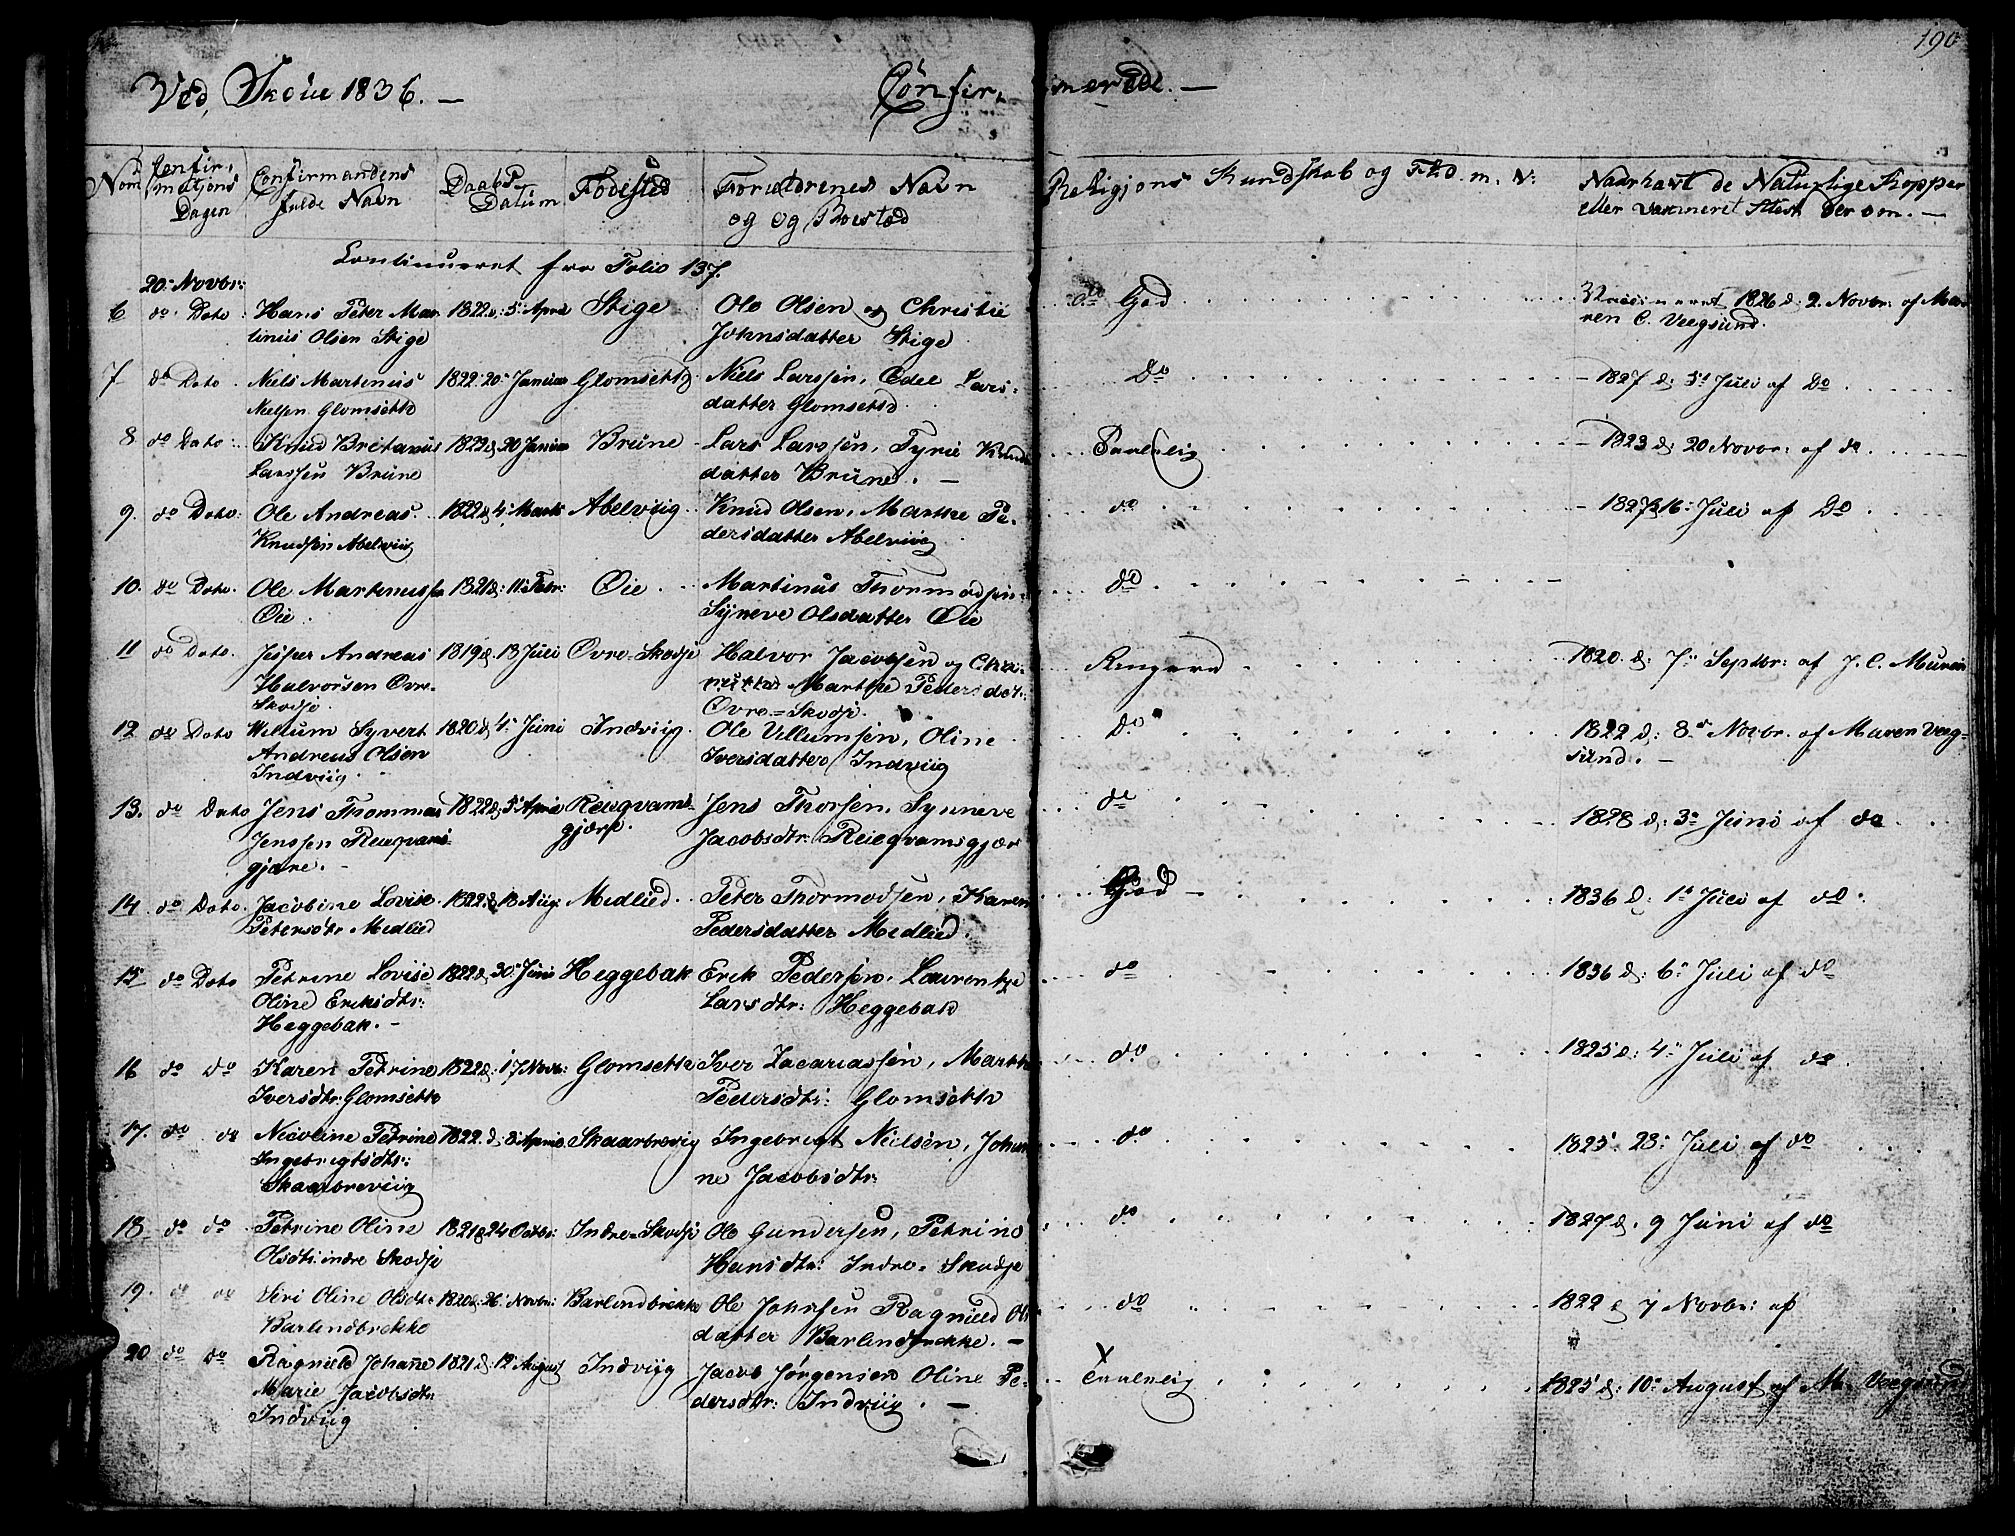 190
Ved Skoue 1836. — Confir- merede. —
Nom
Confir-
mations
Dagen
Confirmandens
fulde Navn
Daabs
Datum
Fødested
Forældrenes Navn
og og Boested
Religjons Kundskab og Fl. d. m. V:
Naar havt de Naturlige Kopper
eller Vaxineret Attest derom. —
Continueret fra Folio 137.
20. Novbr:
6 do Dato. Hans Peter Mar 1822 d: 5. April Stige Ole Olsen og Christie do God 1826 d: 2. Novbr: af Ma-
tinus Olsen Stige Johnsdatter Stige ren C. Veegsund.
7 do Dato. Niels Martinus 1822. 20. Januar Glomsetth Niels Larssen, Edel Lars- Do 1827 d: 5t Juli af Do
Nielsen Glomsetth datter Glomsetd
8 do Dato. Knud Bretanus 1822 d 20 Januar Brune Lars Larssen, Tyrie Knuds Taalelig 1823 d: 20 Novbr: af do
Larssen Brune datter Brune. —
9. do Dato. Ole Andreas 1822 d 4. Marts Abelviig Knud Olsen, Marthe Pe- do 1827 d 16: Juli af Do
Knudsen Abelviig dersdatter Abelviig
10. do Dato. Ole Martinussen 1821 d: 11. Febr: Øie Martinus Thormodsen do
Øie. Syneve Olsdatter Øie
11 do Dato. Jesper Andreas 1819 d. 13 Juli Øvre-Skodje Halvor Jacobsen og 1820. d: 7. Septbr: af J. C.
Halvorsen Øvre- Marthe Pedersdatr:
Skodje. Øvre-Skodje.
12 do Dato Villum Syvert 1820 d 4. Juni Indviig Ole Villumsen, Oline Do 1822 d: 8. Novbr. af Maren Veeg-
Andreas Olsen Iversdatter Indviig sund. —
Indviig.
13. do Dato Jens Thommas 1822 d 5. April gjære. Jens Thorsen, Synneve do 1828 d: 3. Juni af do
Jenssen Jacobsdtr:
gjære. —
14 do Dato. Jacobine Lovise 1822. d 18 Aug: Medlied Peter Thormodsen, Karen God 1836 d: 1. Juli af do.
Petersdtr Medlied Pedersdatter Medlied.
15 do Dato Petrine Lovise 1822 d. 30. Juni Heggebak Erik Pedersen, Laurentze do 1836 d: 6. Juli af do
Oline Eriksdtr: Larsdtr: Heggebak
Heggebak. —
16 do do Karen Petrine 1822 d: 17 Novbr: Glomsetth Iver Zacariassen, Marthe do 1825 d: 4. Juli af do.
Iversdtr: Glomsetth Pedersdtr: Glomsetth
17. do do Nicoline Petrine 1822. d 8 April Skaarbrevig Ingebrigt Nielsen, Johan do 1825. 23: Juli af do
Ingebrigtsdtr: ne Jacobsdtr:
Skaarbreviig
18 do do Petrine Oline 1821 d 24 Octbr: Indre-Skodje Ole Gundersen, Petrine do 1827 d. 9 Juni af do
Olsdtr: indre Skodje Hansdtr: Indre-Skodje
19. do do Siri Oline Olsdtr 1820 d. 26. Novbr: Barlindbrekke Ole Johnsen Ragnild Ols do 1822 d 7 Novbr: af
Barlindbrekke datter Barlindbrekke. —
20 do do Ragnild Johanne 1821 d. 12. August Indviig Jacob Jørgensen Oline Pe- Taalelig 1825 d: 10. August af M. Veegsund
Marie Jacobsdtr dersdtr: Indviig. —
Indviig